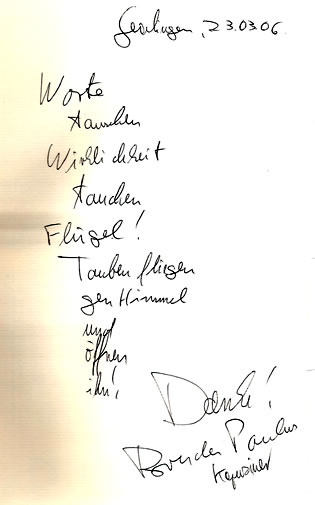 Geislingen, 23.03.06
Worte
tauschen
Wirklichkeit
tauchen
Flügel!
Tauben fliegen
gen Himmel
und
öffnen
ihn!
Danke!
Bruder Paulus
Kapuziner